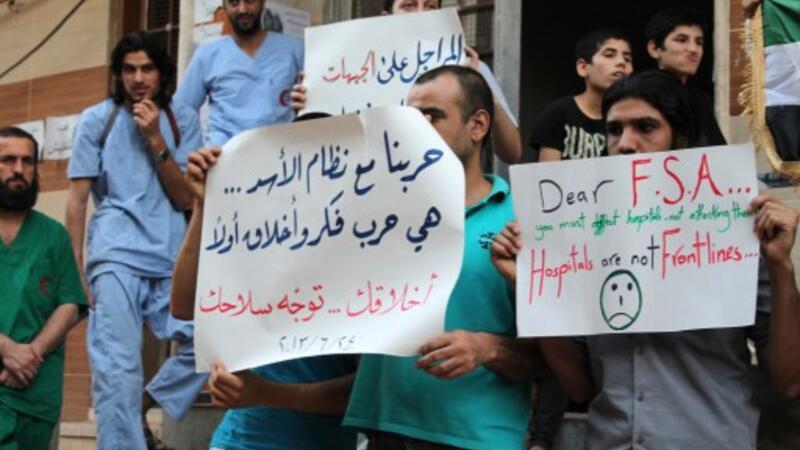 المراجل على الجبهات
حربنا مع نظام الأسد ...
هي حرب فكر وأخلاق أولاً
أخلاقك ... توجّه سلاحك
٢٠١٣/٦/٢٤
Dear F.S.A...
you must hospitals. not attacking them
Hospitals are not Frontlines...